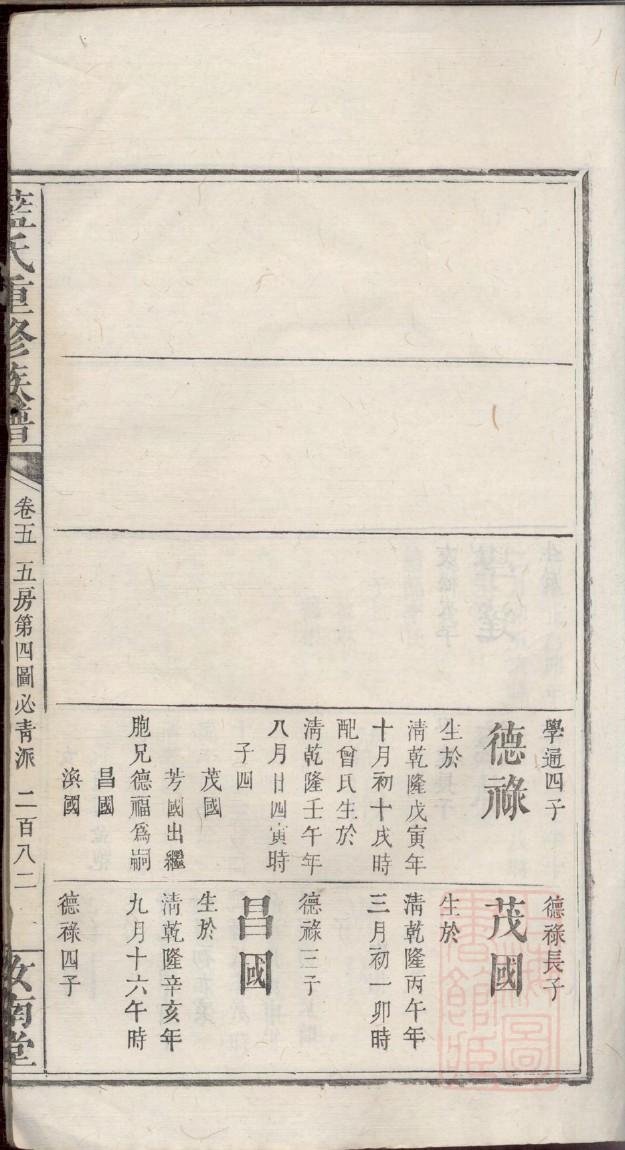 學通四子
德祿
生於
清乾隆戊寅年
十月初十戌時
配曾氏生於
清乾隆壬午年
八月廿四寅時
子四
茂國
芳國出繼
胞兄德福爲嗣
昌國
渙國
德祿長子
茂國
生於
清乾隆丙午年
三月初一卯時
德祿三子
昌國
生於
清乾隆辛亥年
九月十六午時
德祿四子
藍氏重修族譜
卷五 五房第四圖必青派 二百八二
汝南堂